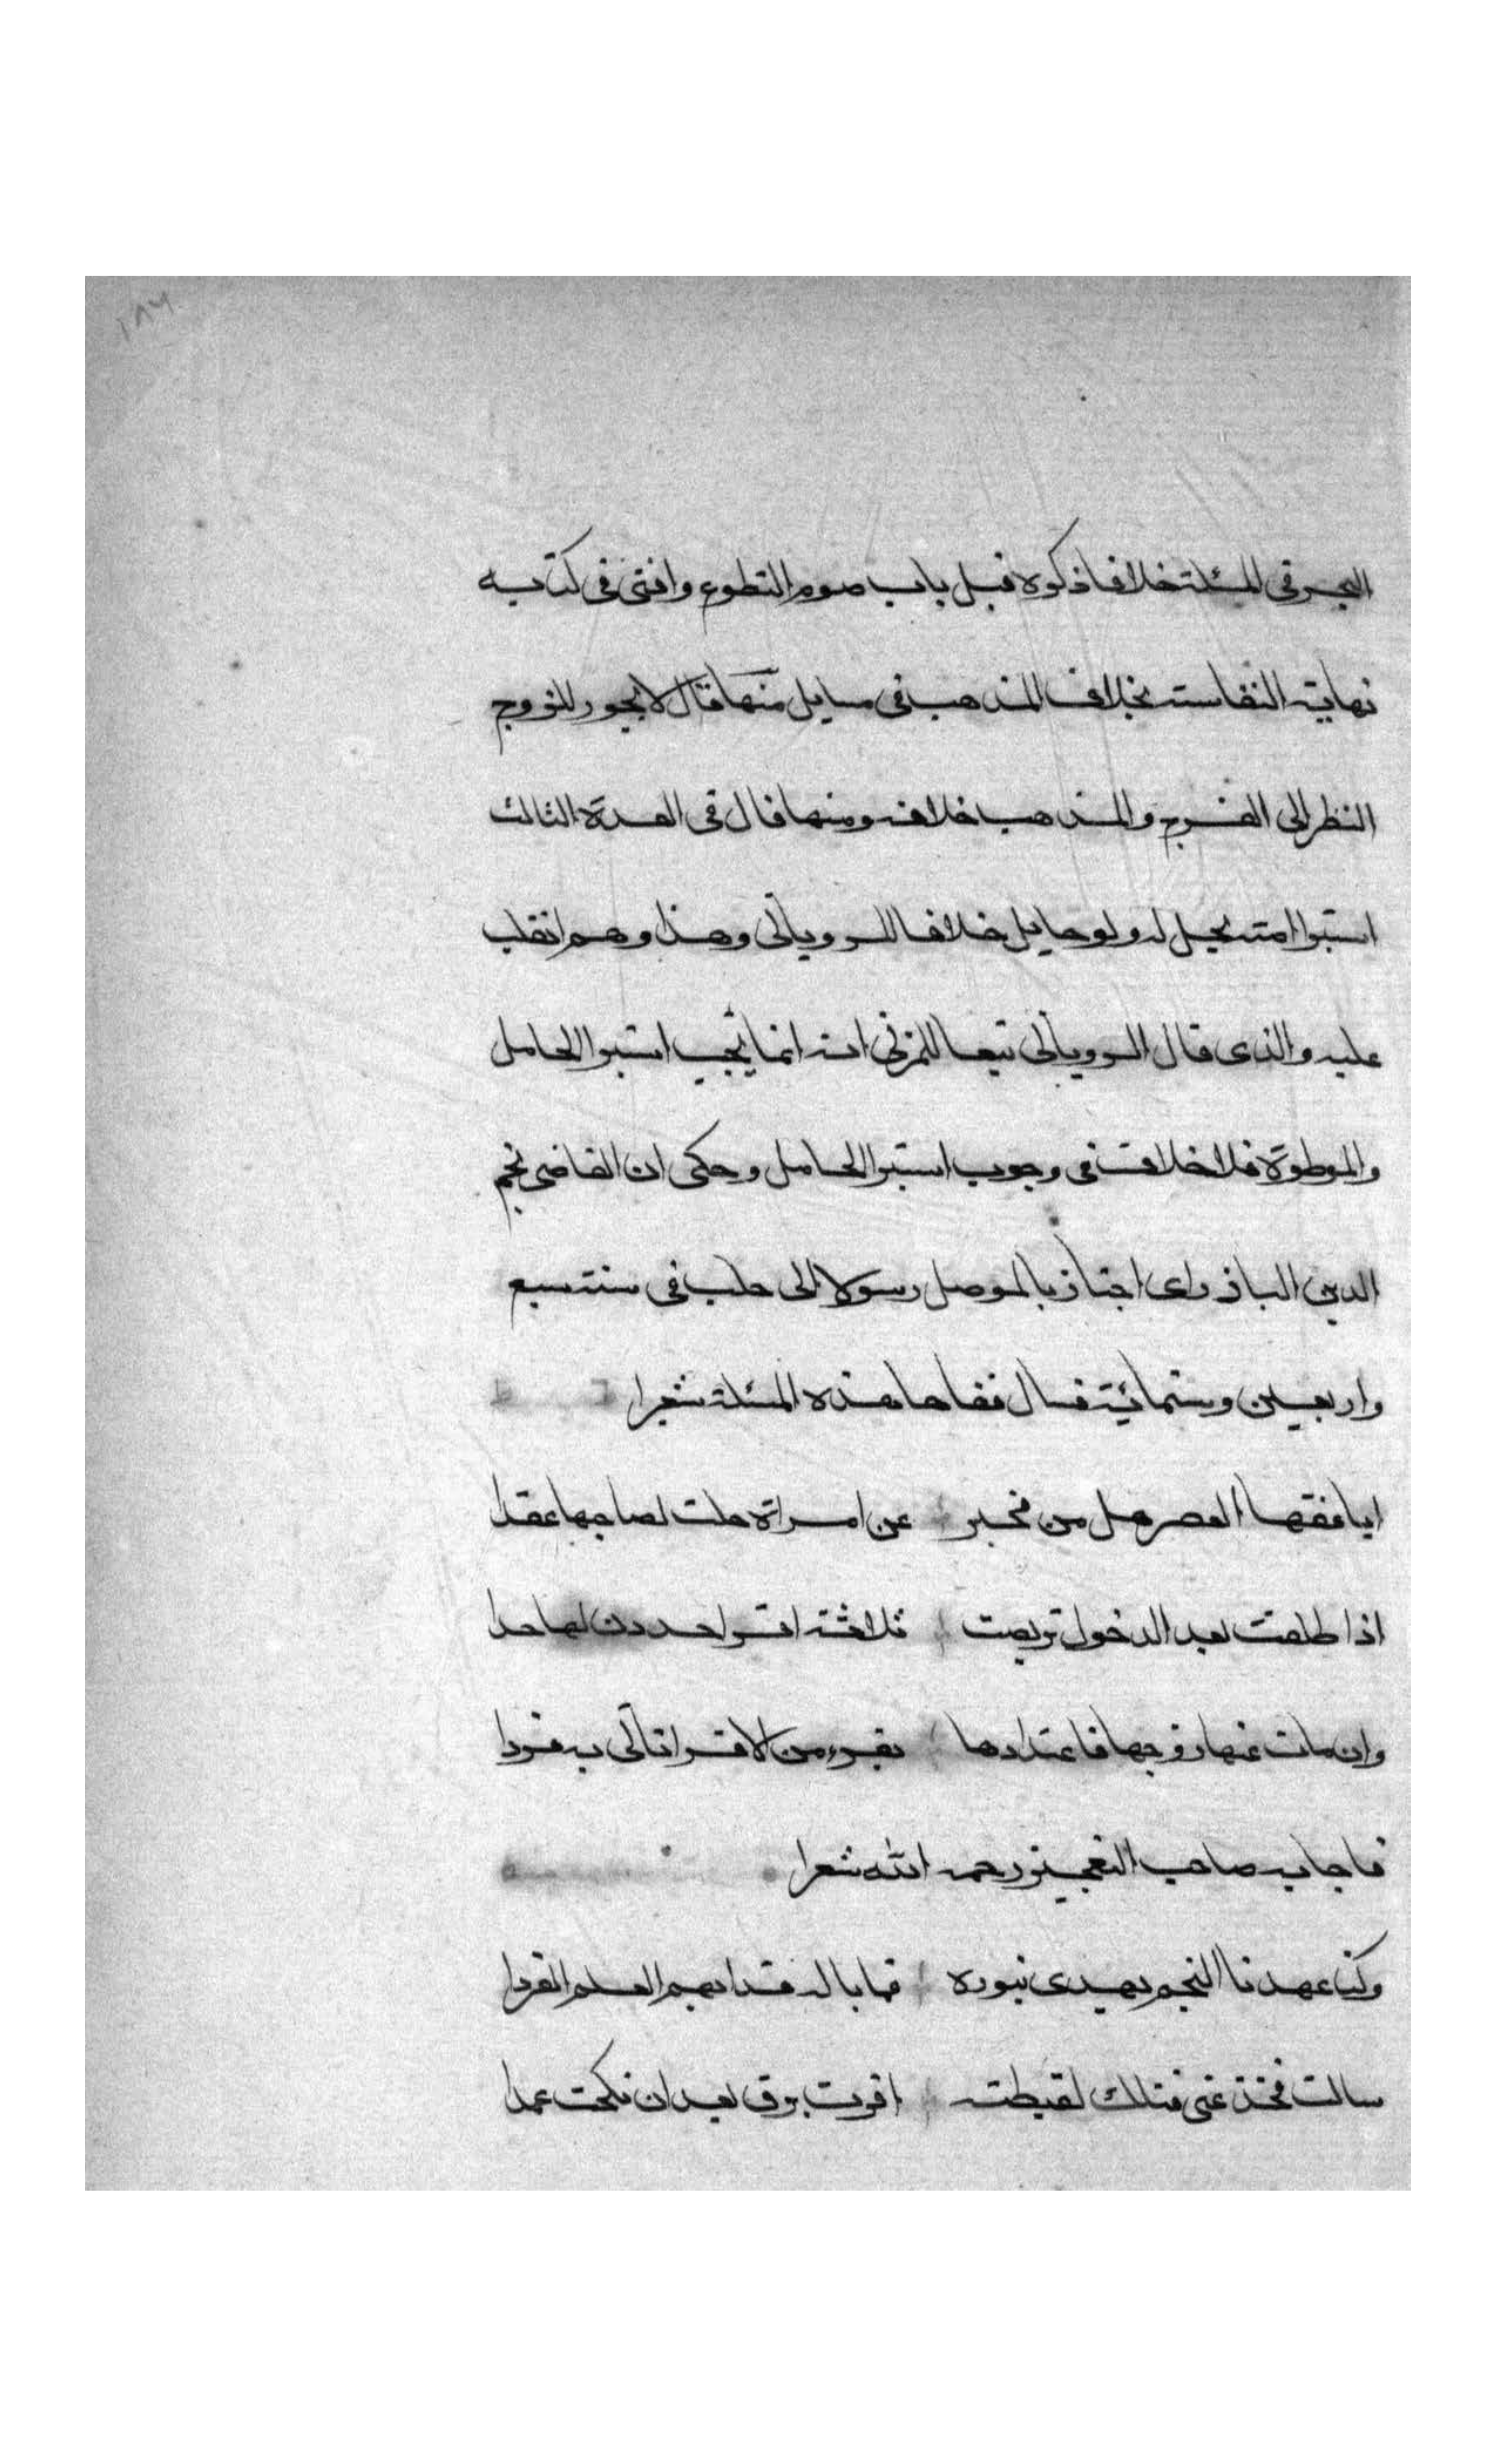 ١٨٦
البحر في المسئلة خلافا ذكره قبل باب صوم التطوع وافتى في كتابه
نهاية النفاسة بخلاف المذهب في مسايل منها قال لا يجوز للزوج
النظر الى الفرج والمذهب خلافه ومنها قال في العدة الثالث
استبرا امته يحل له ولو حايل خلافا للروياني وهذا وهم انقلب
عليه والذي قال الروياني تبعا للمزني انه انما يجب استبرا الحامل
والموطوة فلا خلاف في وجوب استبرا الحامل وحكى ان القاضي نجم
الدين الباذراى اجتاز بالموصل رسولا الى حلب في سنة سبع
واربعين وستمائية فسال فقاها هذه المسئلة شعرا
ايا فقها العصر هل من مخبر عن امراة حلت لصاحبها عقدا
اذا طلقت بعد الدخول تربصت ثلاثة اقرا حددن لها حدا
وان مات عنها زوجها فاعتدادها بقرء من الاقرا تاتي به فردا
فاجابه صاحب التعجيز رحمه الله شعرا
وكنا عهدنا النجم يهدى بنوره فما باله قد ابهم العلم الفردا
سالت فخذ عني فتلك لقيطة اقرت برق بعد ان نكحت عمدا